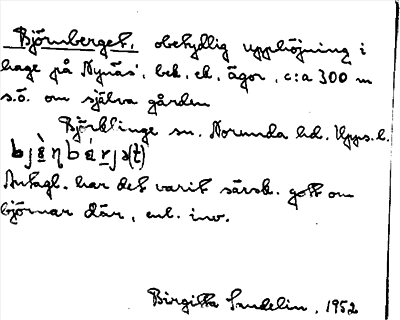 Björnberget, obetydlig upphöjning i
hage på Nynäs', bek. ek. ägor, c:a 300 m
s.ö. om själva gården
Björklinge sn. Norunda hd. Upps.l.
Antagl. har det varit särsk. gott om
björnar där, enl. inv.
Birgitta Sundelin, 1952